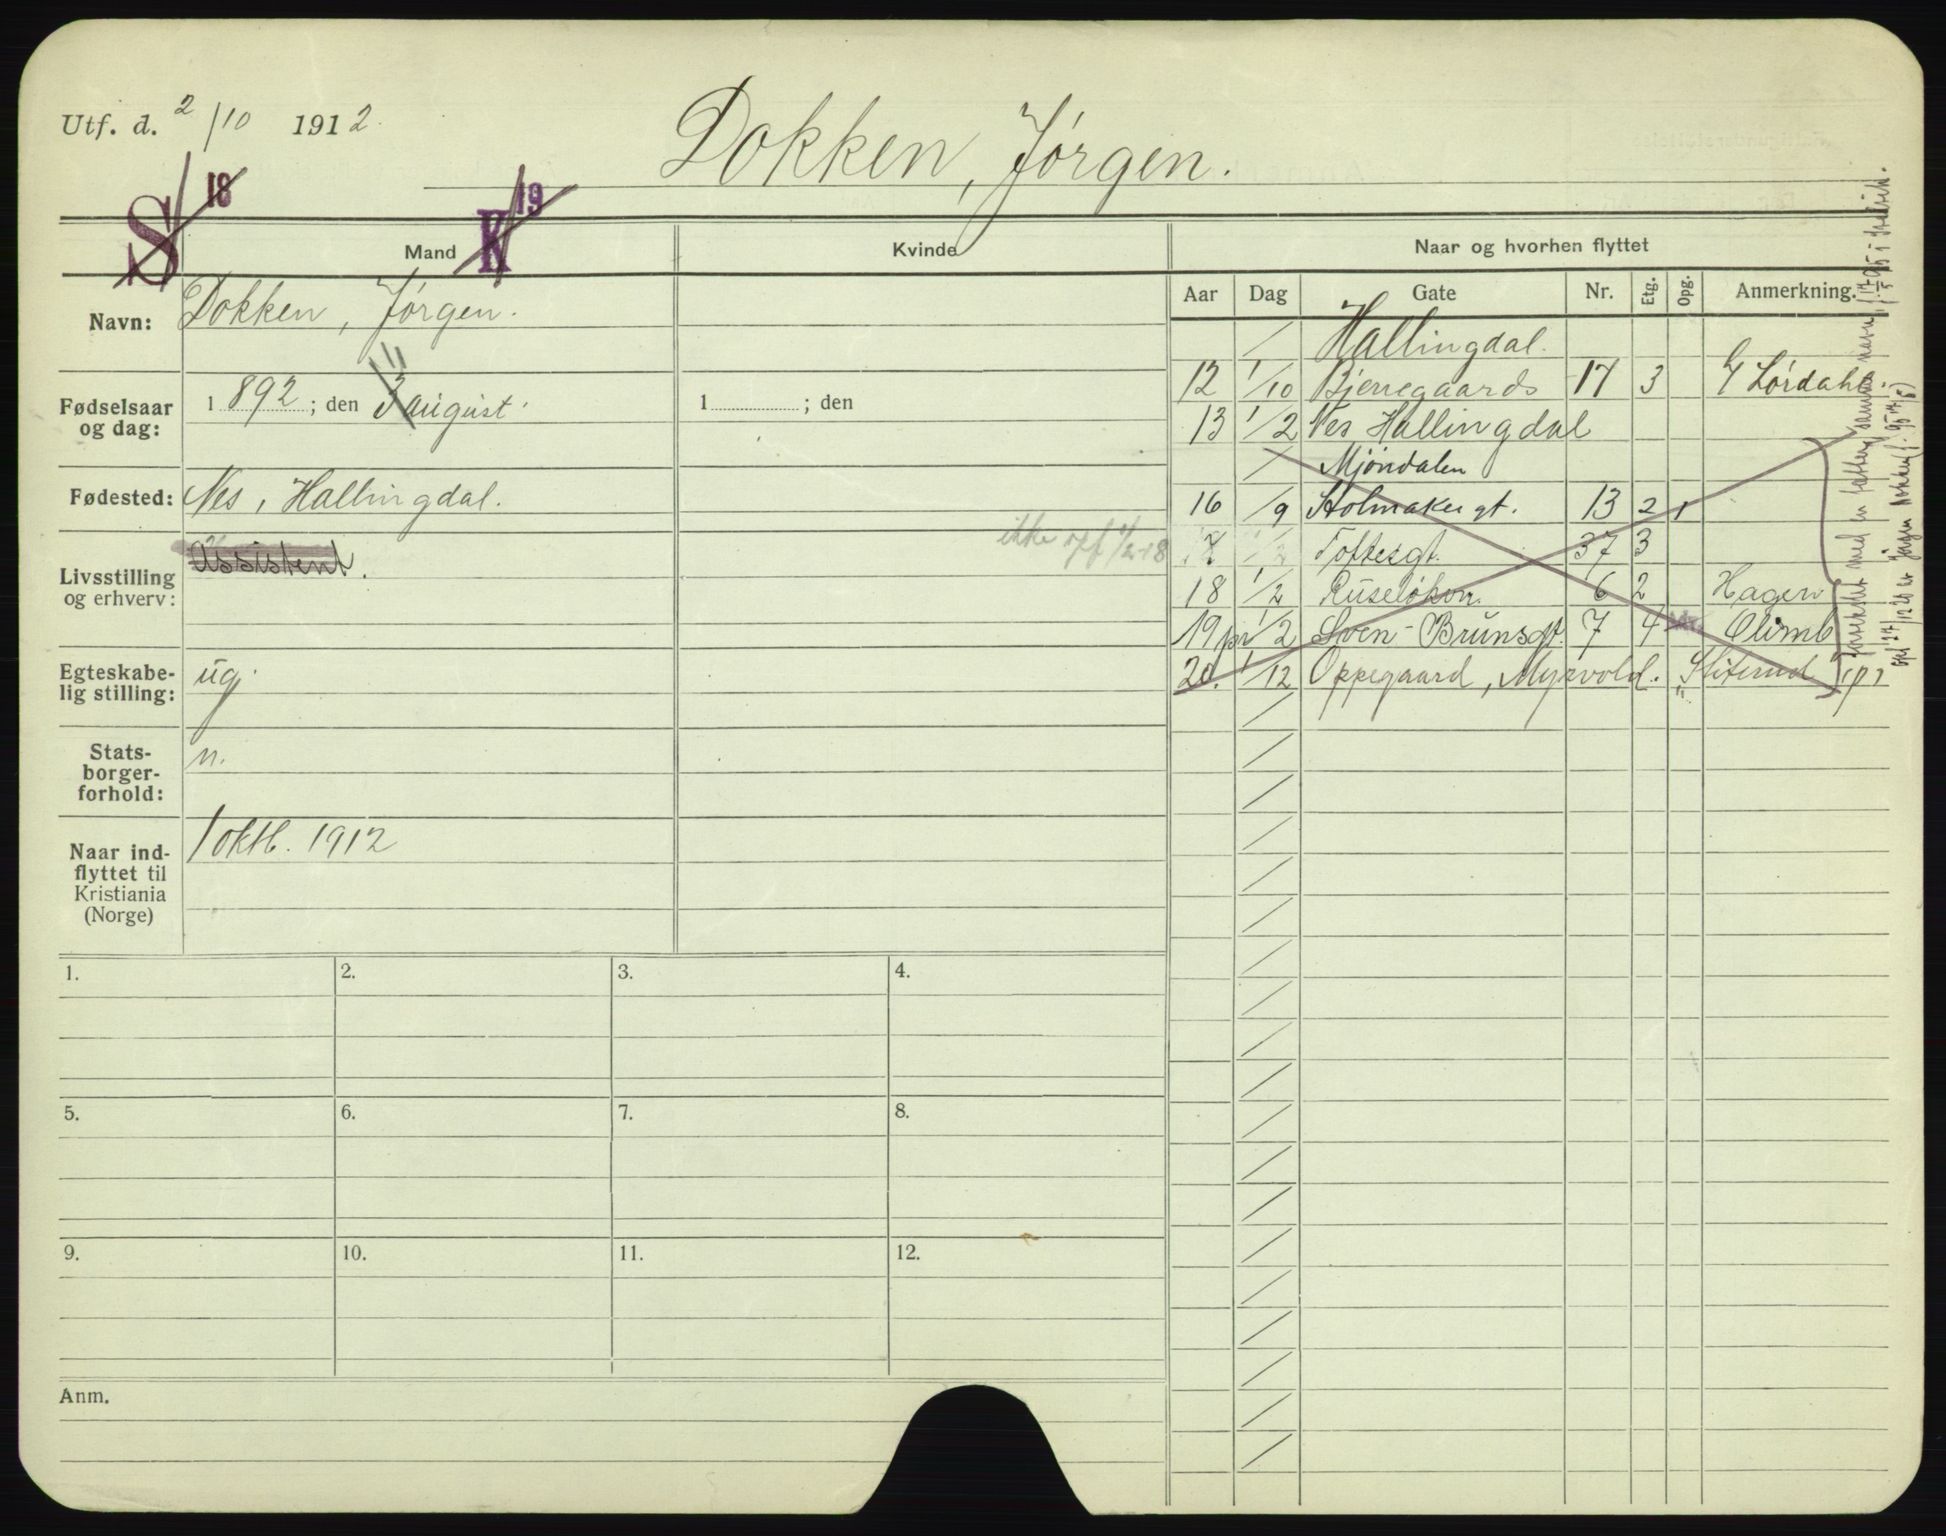 Utf. d. 2/10 1912.
Dokken, Jørgen.
S/18
K/19
Mand
Kvinde
Naar og hvorhen flyttet
Navn: Dokken, Jørgen.
Fødselsaar og dag: 1892; den 11 3 august
1 ; den
Fødested: Nes, Hallingdal.
Livsstilling og erhverv: Assistent.
ikke opf 1/2-18
Egteskabelig stilling: ug.
Statsborgerforhold: n.
Naar indflyttet til Kristiania (Norge) 1 oktb. 1912
Aar Dag Gate Nr. Etg. Opg. Anmerkning.
/ Hallingdal.
12 1/10 Bjerregaards 17 3
13 1/2 Nes Hallingdal
/ Mjøndalen
16 /9 Holmaker gt. 13 2 1
1/2 Toftesgt. 37 3
18 1/2 Ruseløkvn. 6 2 Hagen
19 pr 1/2 Sven-Brunsgt. 7 4
20. 1/12 Oppegaard, Myrvold.
1. 2. 3. 4.
5. 6. 7. 8.
9. 10. 11. 12.
Anm.